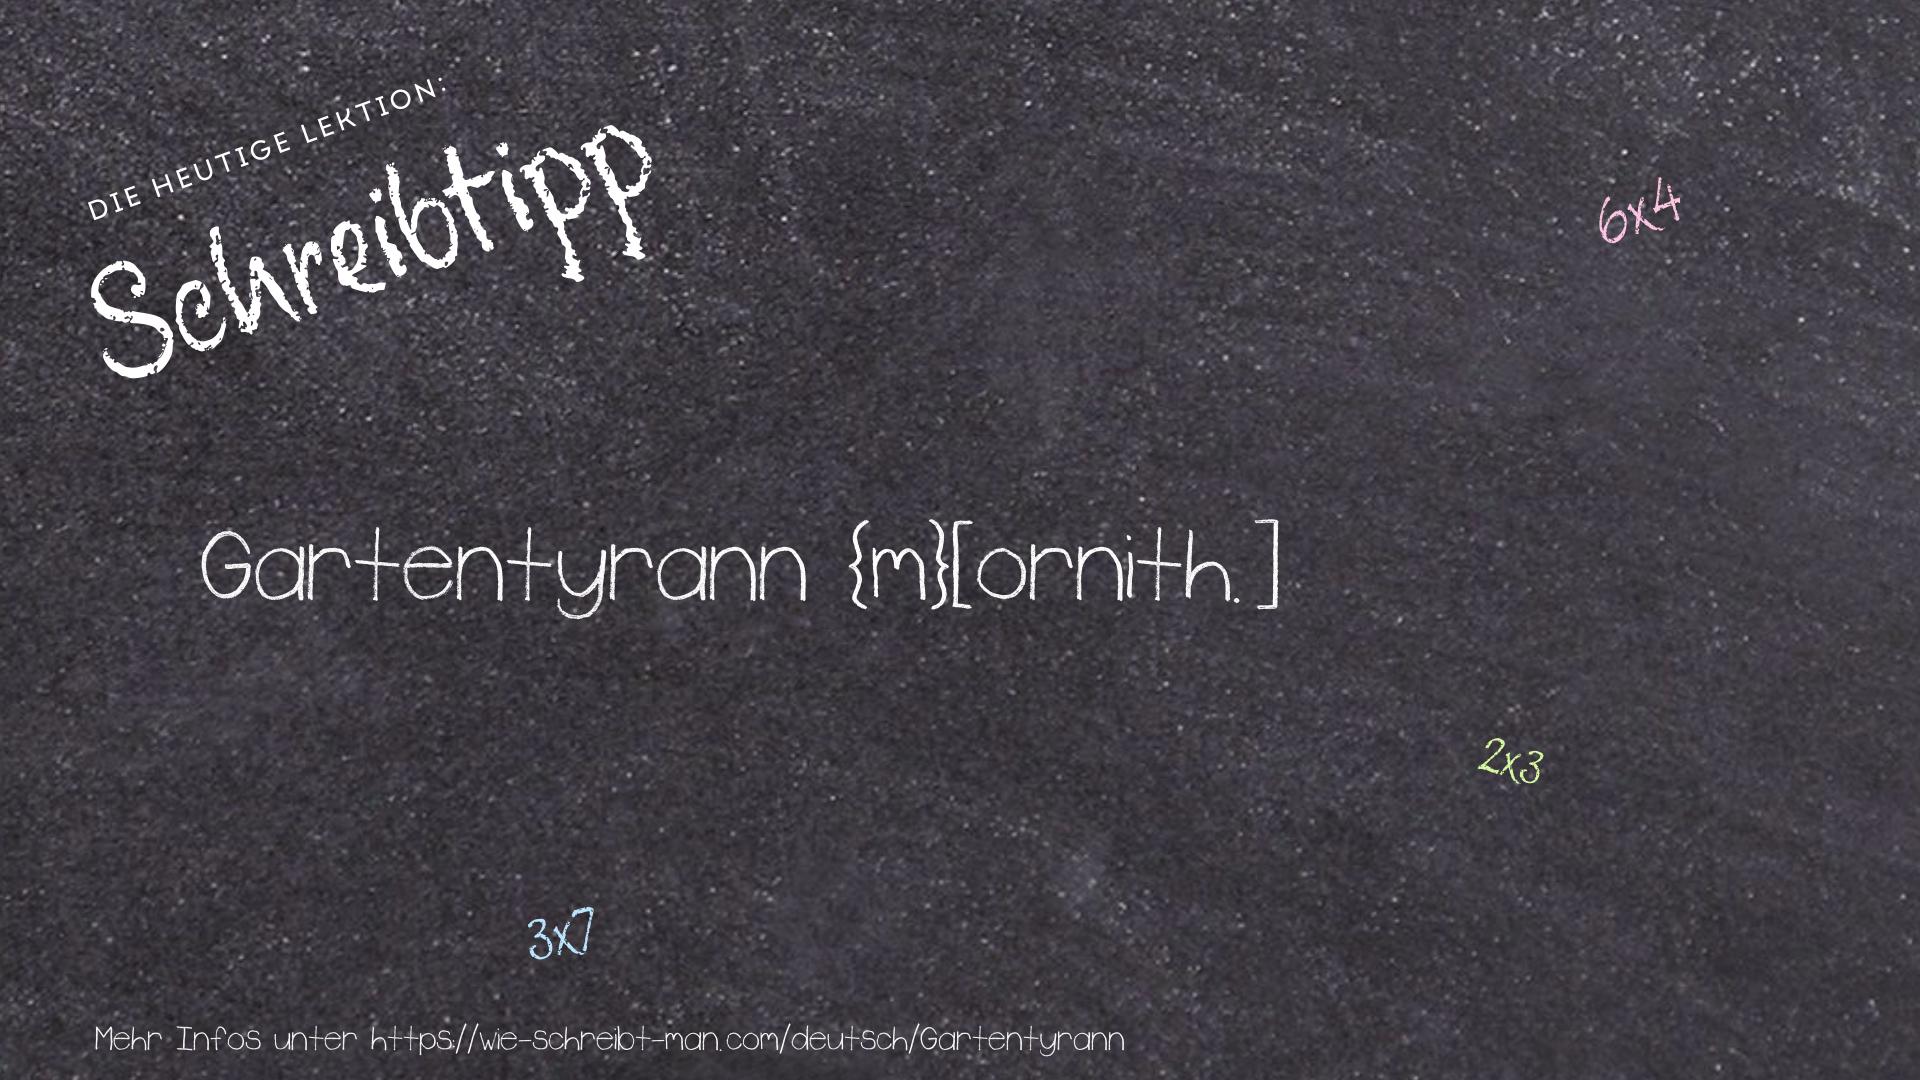 DIE HEUTIGE LEKTION:
Schreibtipp
6x4
Gartentyrann {m}[ornith.]
2x3
3x7
Mehr Infos unter https://wie-schreibt-man.com/deutsch/Gartentyrann